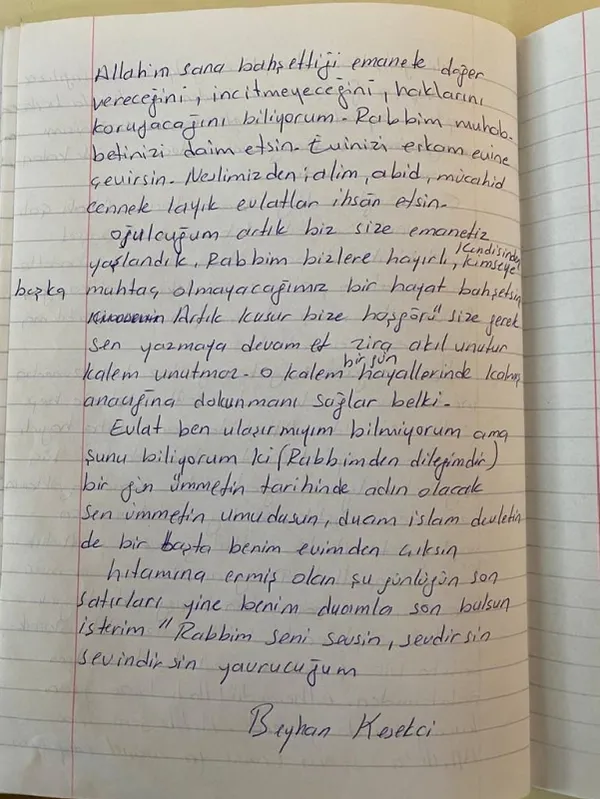 Allahım sana bahşettiği emanete değer
vereceğini, incitmeyeceğini, haklarını
koruyacağını biliyorum. Rabbim muhab-
betinizi daim etsin. Evinizi erkam evine
çevirsin. Neslimizden; alim, abid, mücahid
cennete layık evlatlar ihsân etsin.
oğulcuğum artık biz size emanetiz
yaşlandık, Rabbim bizlere hayırlı, kendisinden kimseye
başka muhtaç olmayacağımız bir hayat bahşetsin
Artık kusur bize hoşgörü" size gerek
sen yazmaya devam et zira akıl unutur
kalem unutmaz. o kalem bir gün hayallerinde
anacığına dokunmanı sağlar belki.
Evlat ben ulaşırmıyım bilmiyorum ama
şunu biliyorum ki (Rabbimden dileğimdir)
bir gün ümmetin tarihinde adın olacak
sen ümmetin umudusun, duam islam devletin
de bir başta benim evimden çıksın
hıtamına ermiş olan şu günlüğün son
satırları yine benim duamla son bulsun
isterim "Rabbim seni sevsin, sevdirsin
sevindirsin yavrucuğum
Beyhan Kesekci